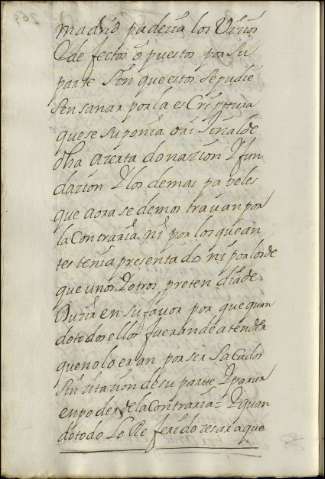 madrid padecia los Vicios
Y defectos opuestos por su
parte sin que estos se pudie
sen sanar por la escriptura
que se suponia original de
dha cierta donacion Y fun
dacion Y los demas papeles
que aora se demostravan por
la Contraria ni por los que an
tes tenia presentado ni por los de
que unos Y otros pretendia de
ducir en su favor por que quan
do todos ellos fueran de atender
que no lo eran por ser Sacados
sin citacion de su parte Y parar
en poder de la Contraria = Y quan
do todo lo Referido cesara que